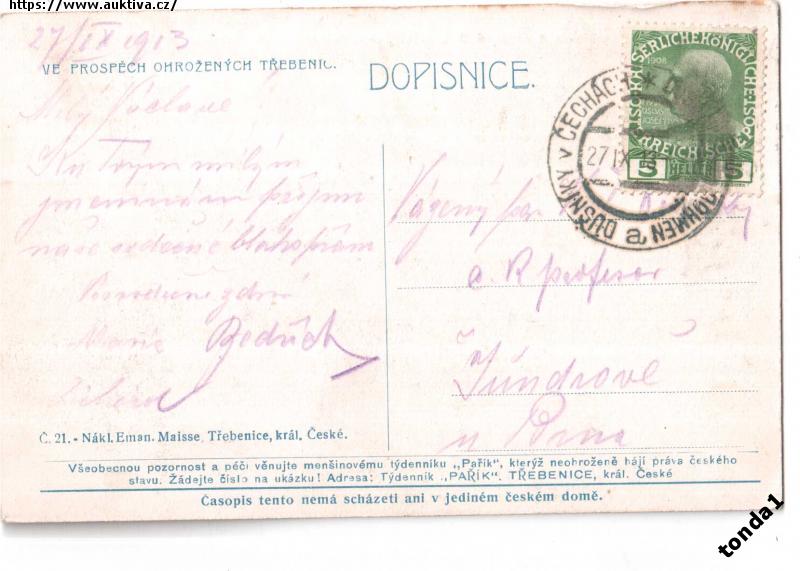 https://www.auktiva.cz/
27/IX 1913
VE PROSPĚCH OHROŽENÝCH TŘEBENIC.
DOPISNICE.
Milý Václave!
Ku Tvým milým
jmeninám přijmi
naše srdečné blahopřání
Marie Bedřich
Vážený pan
c. k. profesor
u Brna
KAISERLICHE KÖNIGLICHE ÖSTERREICHISCHE POST
1908
5 HELLER 5
DUŠNÍKY v ČECHÁCH
27 IX
a
Č. 21. - Nákl. Eman. Maisse, Třebenice, král. České.
Všeobecnou pozornost a péči věnujte menšinovému týdenníku „Pařík", kterýž neohroženě hájí práva českého
stavu. Žádejte číslo na ukázku! Adresa: Týdenník „PAŘÍK". TŘEBENICE, král. České
Časopis tento nemá scházeti ani v jediném českém domě.
tonda1